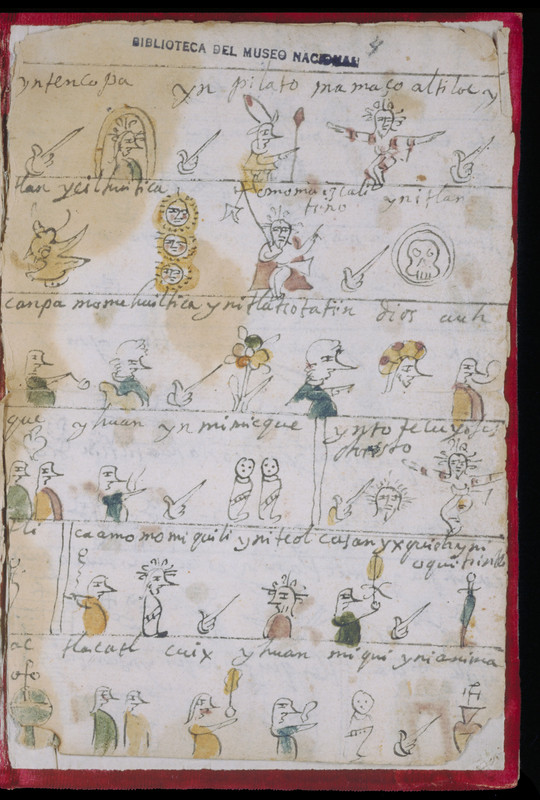 BIBLIOTECA DEL MUSEO NACIONAL
4
yntencopa yn pilato mamaço altiloc y
tlan yeilhuitica momaizcali
tzino ynitlan
canpa momehuiltica ynitlaçotatzin dios auh
que yhuan yn mimicque yntotecuyo Jesu
christo
ca amo momiquili yniteol
oquitzin
tlacatl cuix yhuan miqui ynianima